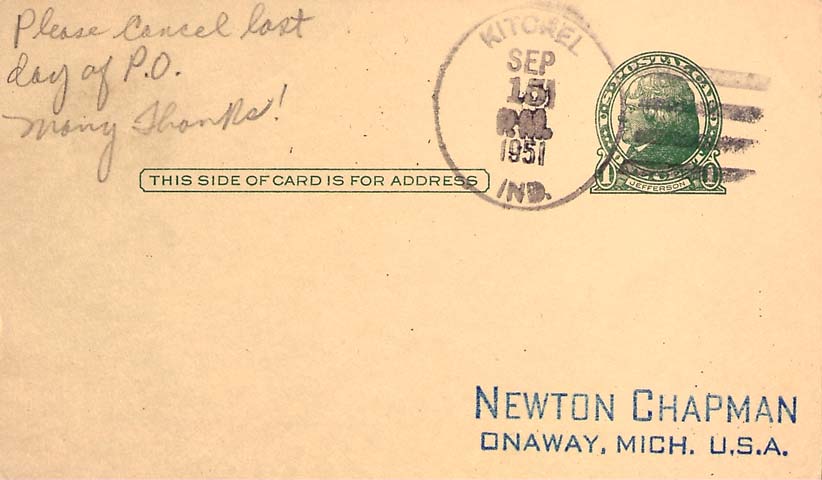 Please Cancel last
day of P.O.
Many Thanks!
KITCHEL
SEP
15
P.M.
1951
IND.
U.S. POSTAL CARD
1 JEFFERSON 1
THIS SIDE OF CARD IS FOR ADDRESS
NEWTON CHAPMAN
ONAWAY, MICH. U.S.A.